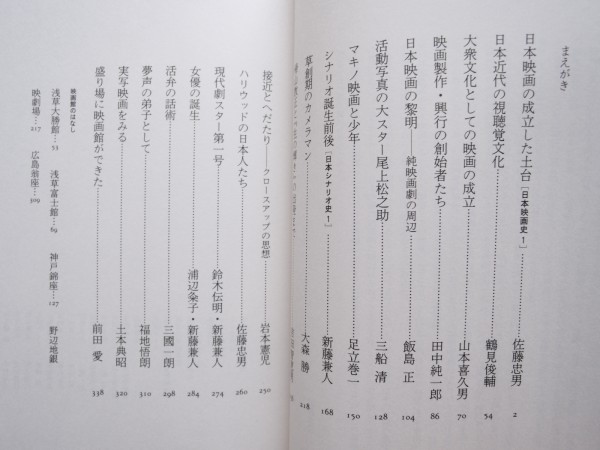 まえがき
日本映画の成立した土台［日本映画史1］……佐藤忠男 2
日本近代の視聴覚文化……鶴見俊輔 54
大衆文化としての映画の成立……山本喜久男 70
映画製作・興行の創始者たち……田中純一郎 86
日本映画の黎明──純映画劇の周辺……飯島 正 104
活動写真の大スター尾上松之助……三船 清 128
マキノ映画と少年……足立巻一 150
シナリオ誕生前後［日本シナリオ史1］……新藤兼人 168
草創期のカメラマン……大森 勝 218
接近とへだたり──クローズアップの思想……岩本憲児 250
ハリウッドの日本人たち……佐藤忠男 260
現代劇スター第一号……鈴木伝明・新藤兼人 274
女優の誕生……浦辺粂子・新藤兼人 284
活弁の話術……三國一朗 298
夢声の弟子として……福地悟朗 310
実写映画をみる……土本典昭 320
盛り場に映画館ができた……前田 愛 338
映画館のはなし
浅草大勝館…53 浅草富士館…69 神戸錦座…127 野辺地銀
映劇場…217 広島新座…309